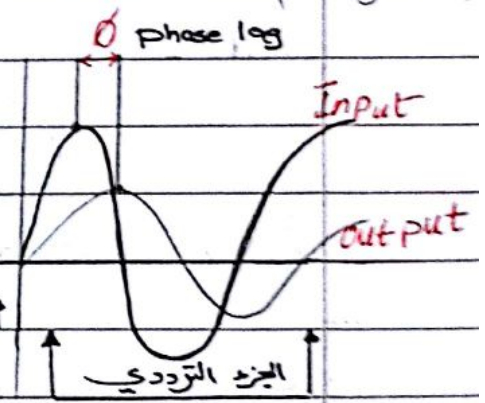 Ø phase lag
Input
output
الجزء الترددي